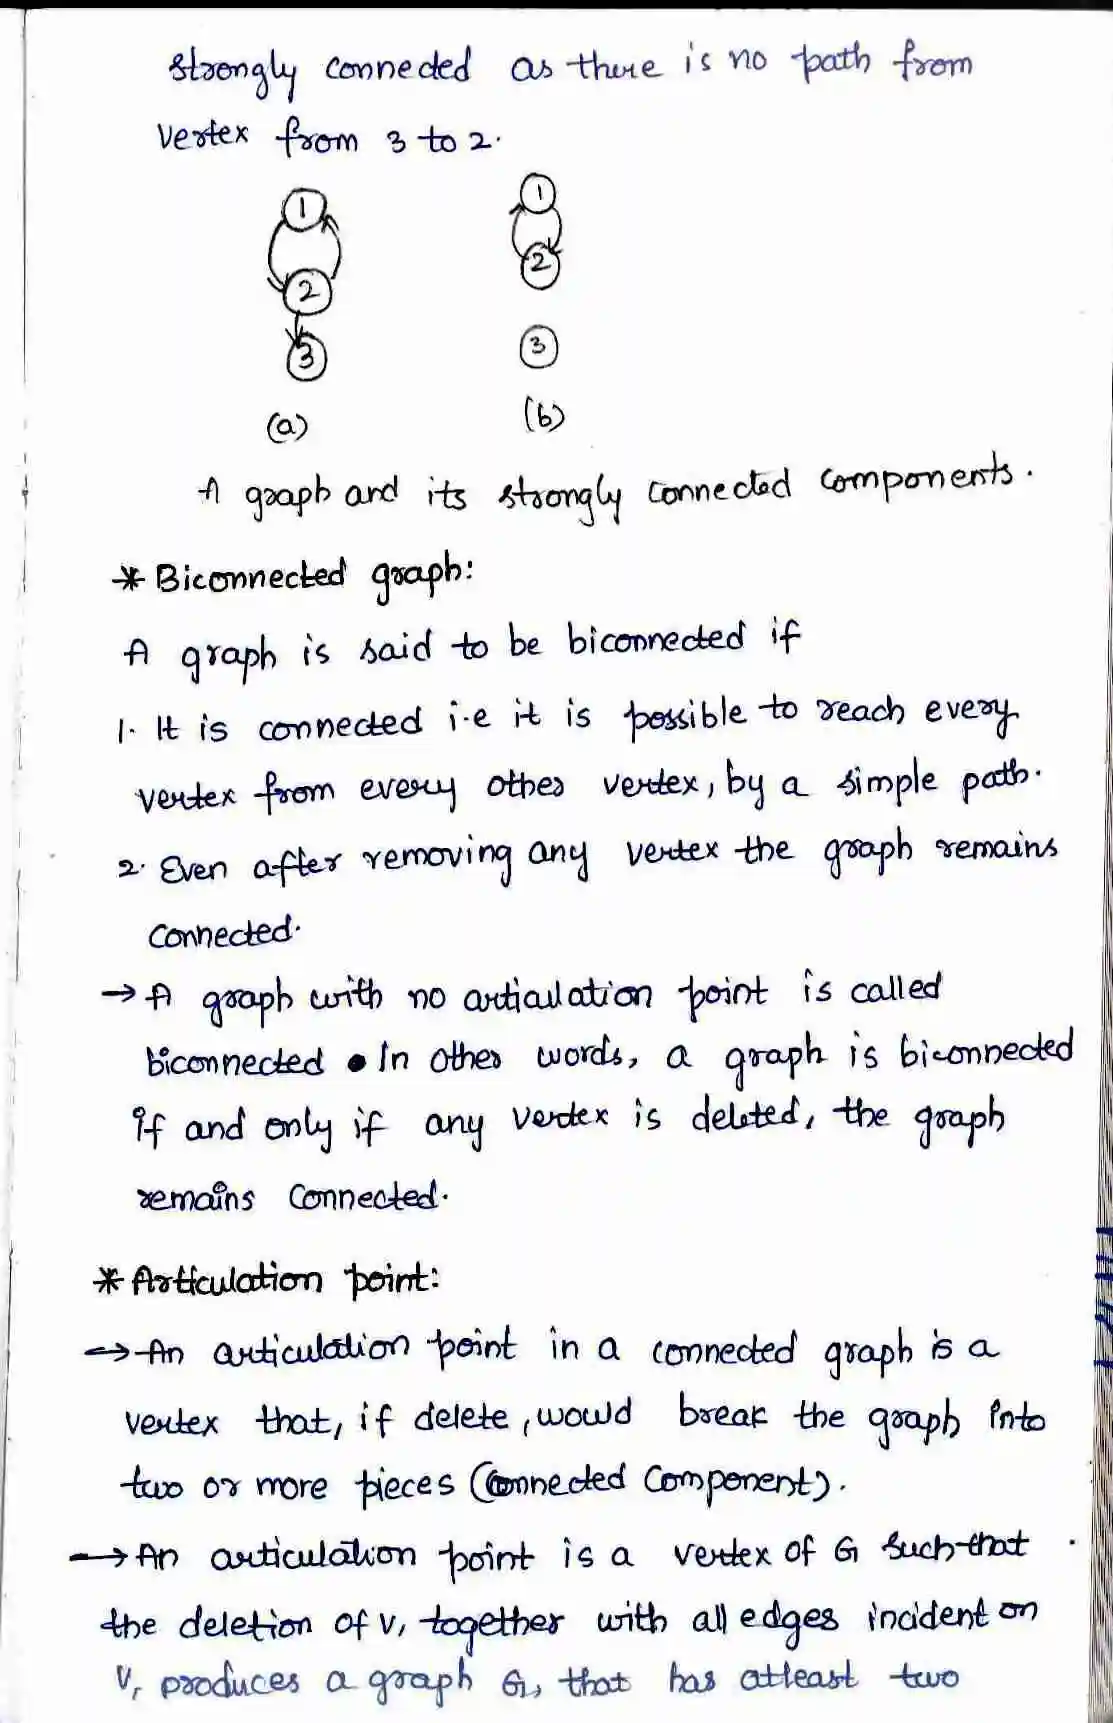 strongly connected as there is no path from
vertex from 3 to 2.
1
1
2
2
3
3
(a)
(b)
A graph and its strongly connected components.
* Biconnected graph:
A graph is said to be biconnected if
1. It is connected i.e it is possible to reach every
vertex from every other vertex, by a simple path.
2. Even after removing any vertex the graph remains
connected.
→ A graph with no articulation point is called
biconnected • In other words, a graph is biconnected
if and only if any vertex is deleted, the graph
remains connected.
* Articulation point:
→ An articulation point in a connected graph is a
vertex that, if delete, would break the graph into
two or more pieces (connected component).
→ An articulation point is a vertex of G such that
the deletion of v, together with all edges incident on
v, produces a graph G, that has atleast two